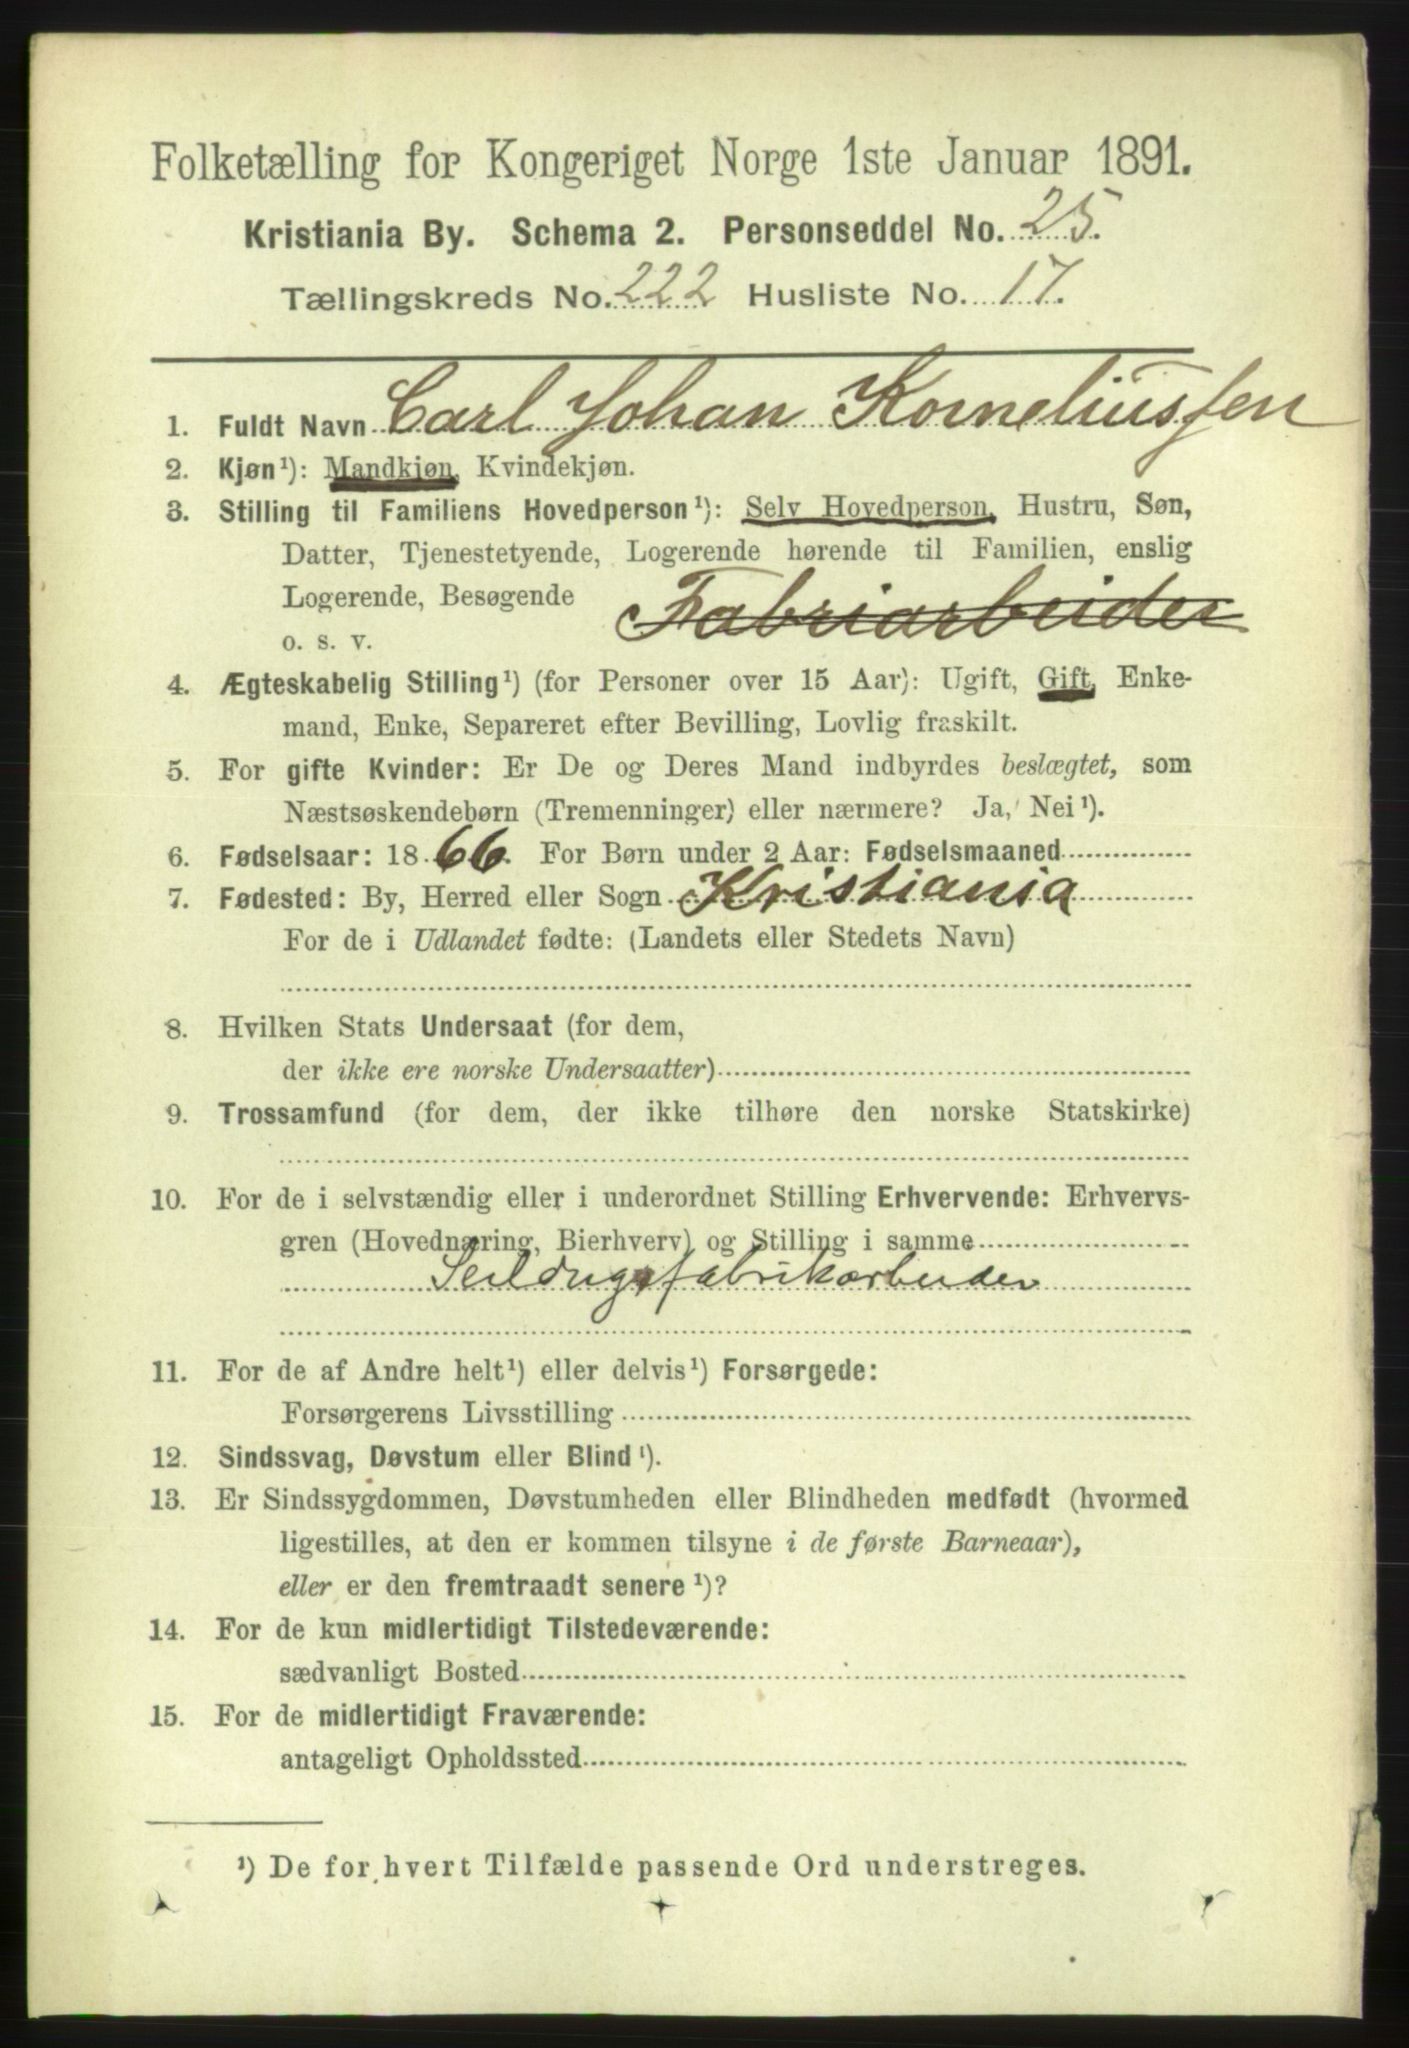 Folketælling for Kongeriget Norge 1ste Januar 1891.
Kristiania By. Schema 2. Personseddel No. 25.
Tællingskreds No. 222 Husliste No. 17.
1. Fuldt Navn Carl Johan Korneliussen
2. Kjøn¹): Mandkjøn, Kvindekjøn.
3. Stilling til Familiens Hovedperson¹): Selv Hovedperson, Hustru, Søn,
Datter, Tjenestetyende, Logerende hørende til Familien, enslig
Logerende, Besøgende Fabriarbeider
o. s. v.
4. Ægteskabelig Stilling¹) (for Personer over 15 Aar): Ugift, Gift, Enke-
mand, Enke, Separeret efter Bevilling, Lovlig fraskilt.
5. For gifte Kvinder: Er De og Deres Mand indbyrdes beslægtet, som
Næstsøskendebørn (Tremenninger) eller nærmere? Ja, Nei¹).
6. Fødselsaar: 1866. For Børn under 2 Aar: Fødselsmaaned
7. Fødested: By, Herred eller Sogn Kristiania
For de i Udlandet fødte: (Landets eller Stedets Navn)
8. Hvilken Stats Undersaat (for dem,
der ikke ere norske Undersaatter)
9. Trossamfund (for dem, der ikke tilhøre den norske Statskirke)
10. For de i selvstændig eller i underordnet Stilling Erhvervende: Erhvervs-
gren (Hovednæring, Bierhverv) og Stilling i samme
Seildugsfabrikarbeider
11. For de af Andre helt¹) eller delvis¹) Forsørgede:
Forsørgerens Livsstilling
12. Sindssvag, Døvstum eller Blind¹).
13. Er Sindssygdommen, Døvstumheden eller Blindheden medfødt (hvormed
ligestilles, at den er kommen tilsyne i de første Barneaar),
eller er den fremtraadt senere¹)?
14. For de kun midlertidigt Tilstedeværende:
sædvanligt Bosted
15. For de midlertidigt Fraværende:
antageligt Opholdssted
¹) De for hvert Tilfælde passende Ord understreges.